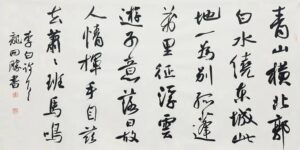 青山横北郭
白水繞東城此
地一為別孤蓬
萬里征浮雲
遊子意落日故
人情揮手自茲
去蕭蕭班馬鳴
李白詩